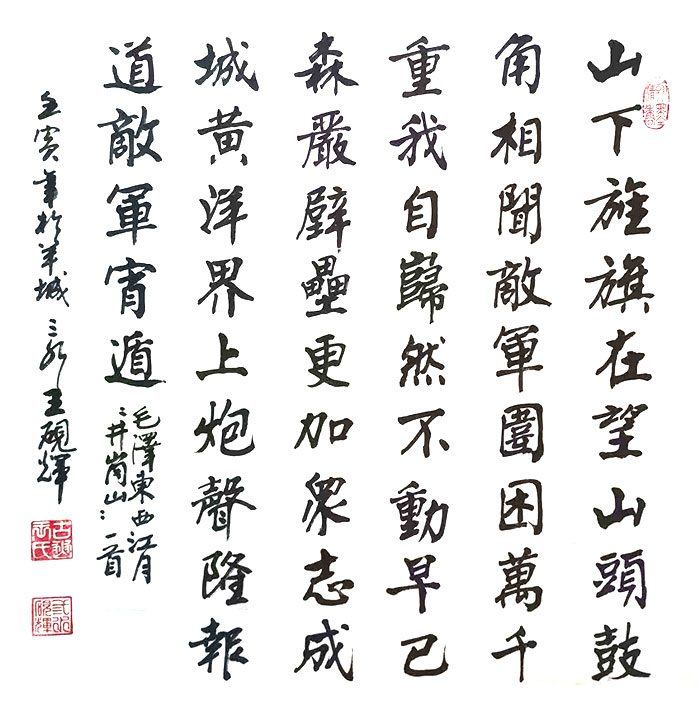 山下旌旗在望山頭鼓
角相聞敵軍圍困萬千
重我自巋然不動早已
森嚴壁壘更加衆志成
城黄洋界上炮聲隆報
道敵軍宵遁
毛澤東西江月
:井崗山: 一首
壬寅年於羊城 三水王硯輝